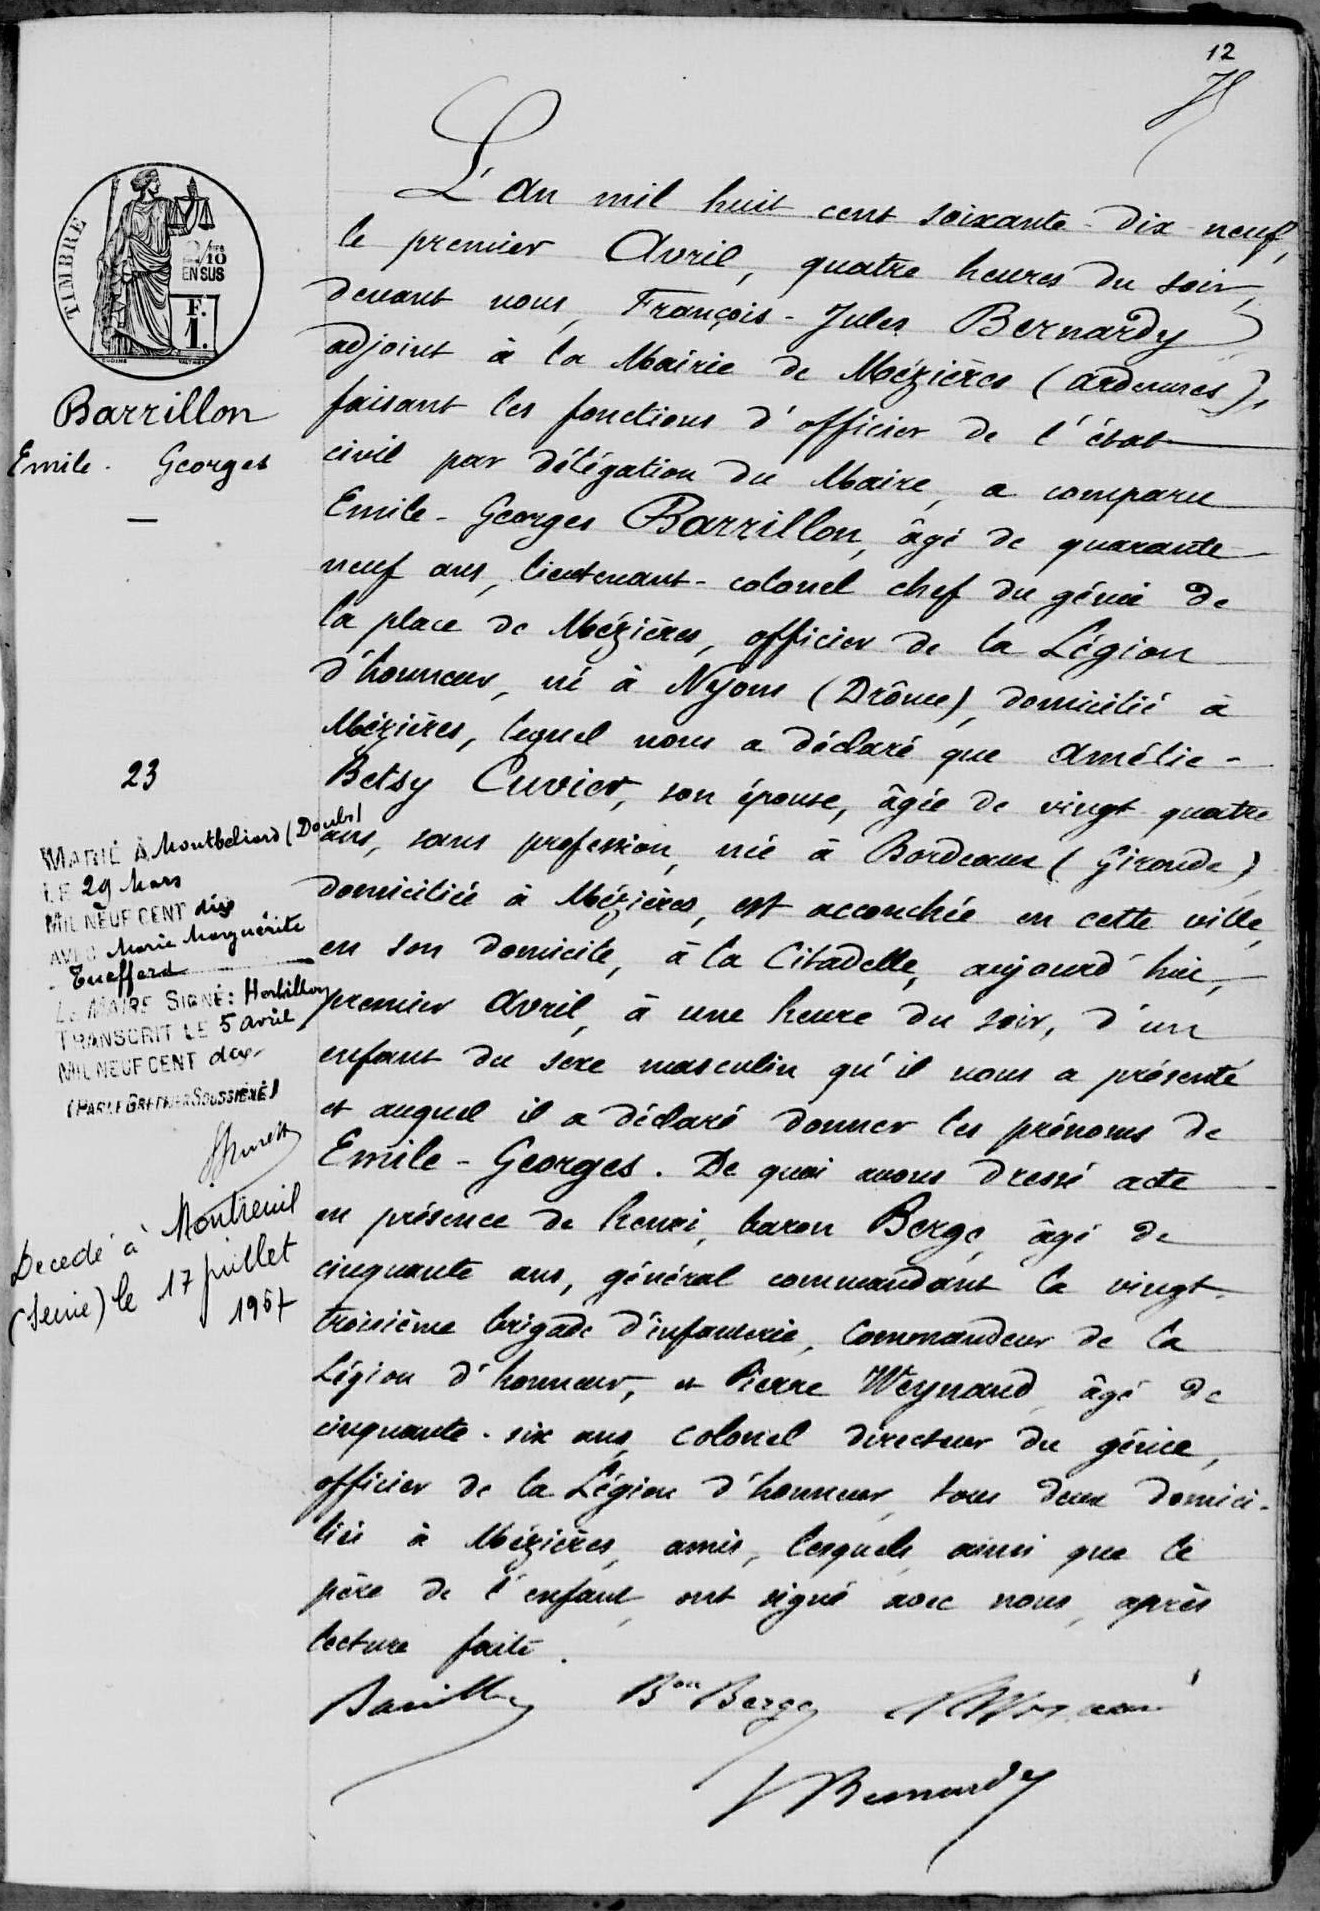 12
TIMBRE
2/10
EN SUS
F.
1.
Barrillon
Emile - Georges
23
MARIÉ À Montbeliard (Doubs)
LE 29 Mars
MIL NEUF CENT dix
AVEC Marie Marguérite
Tuefferd
LE MAIRE SIGNÉ:
TRANSCRIT LE 5 avril
MIL NEUF CENT dix
(PAR LE GREFFIER SOUSSIGNÉ)
Decedé à Montreuil
(Seine) le 17 juillet
L'an mil huit cent soixante-dix-neuf,
le premier Avril, quatre heures du soir,
devant nous, François-Jules Bernardy
adjoint à la Mairie de Mézières (ardennes),
faisant les fonctions d'officier de l'état
civil par délégation du Maire, a comparu
Emile-Georges Barrillon, âgé de quarante
neuf ans, lieutenant-colonel chef du génie de
la place de Mézières, officier de la Légion
d'honneur, né à Nyons (Drôme), domicilié à
Mézières, lequel nous a déclaré que Amélie-
Betsy Cuvier, son épouse, âgée de vingt quatre
ans, sans profession, née à Bordeaux (Gironde)
domiciliée à Mézières, est accouchée en cette ville,
en son domicile, à la Citadelle, aujourd'hui,
premier Avril, à une heure du soir, d'un
enfant du sexe masculin qu'il nous a présenté
et auquel il a déclaré donner les prénoms de
Emile-Georges. De quoi avons dressé acte
en présence de henri, baron Berge, âgé de
cinquante ans, général commandant la vingt
troisième brigade d'infanterie, Commandeur de la
Légion d'honneur, et Pierre Weynand, âgé de
cinquante-six ans, colonel directeur du génie,
officier de la Légion d'honneur, tous deux domici-
liés à Mézières, amis, lesquels ainsi que le
père de l'enfant, ont signé avec nous, après
lecture faite.
Barrillon Bon Berge
Bernardy